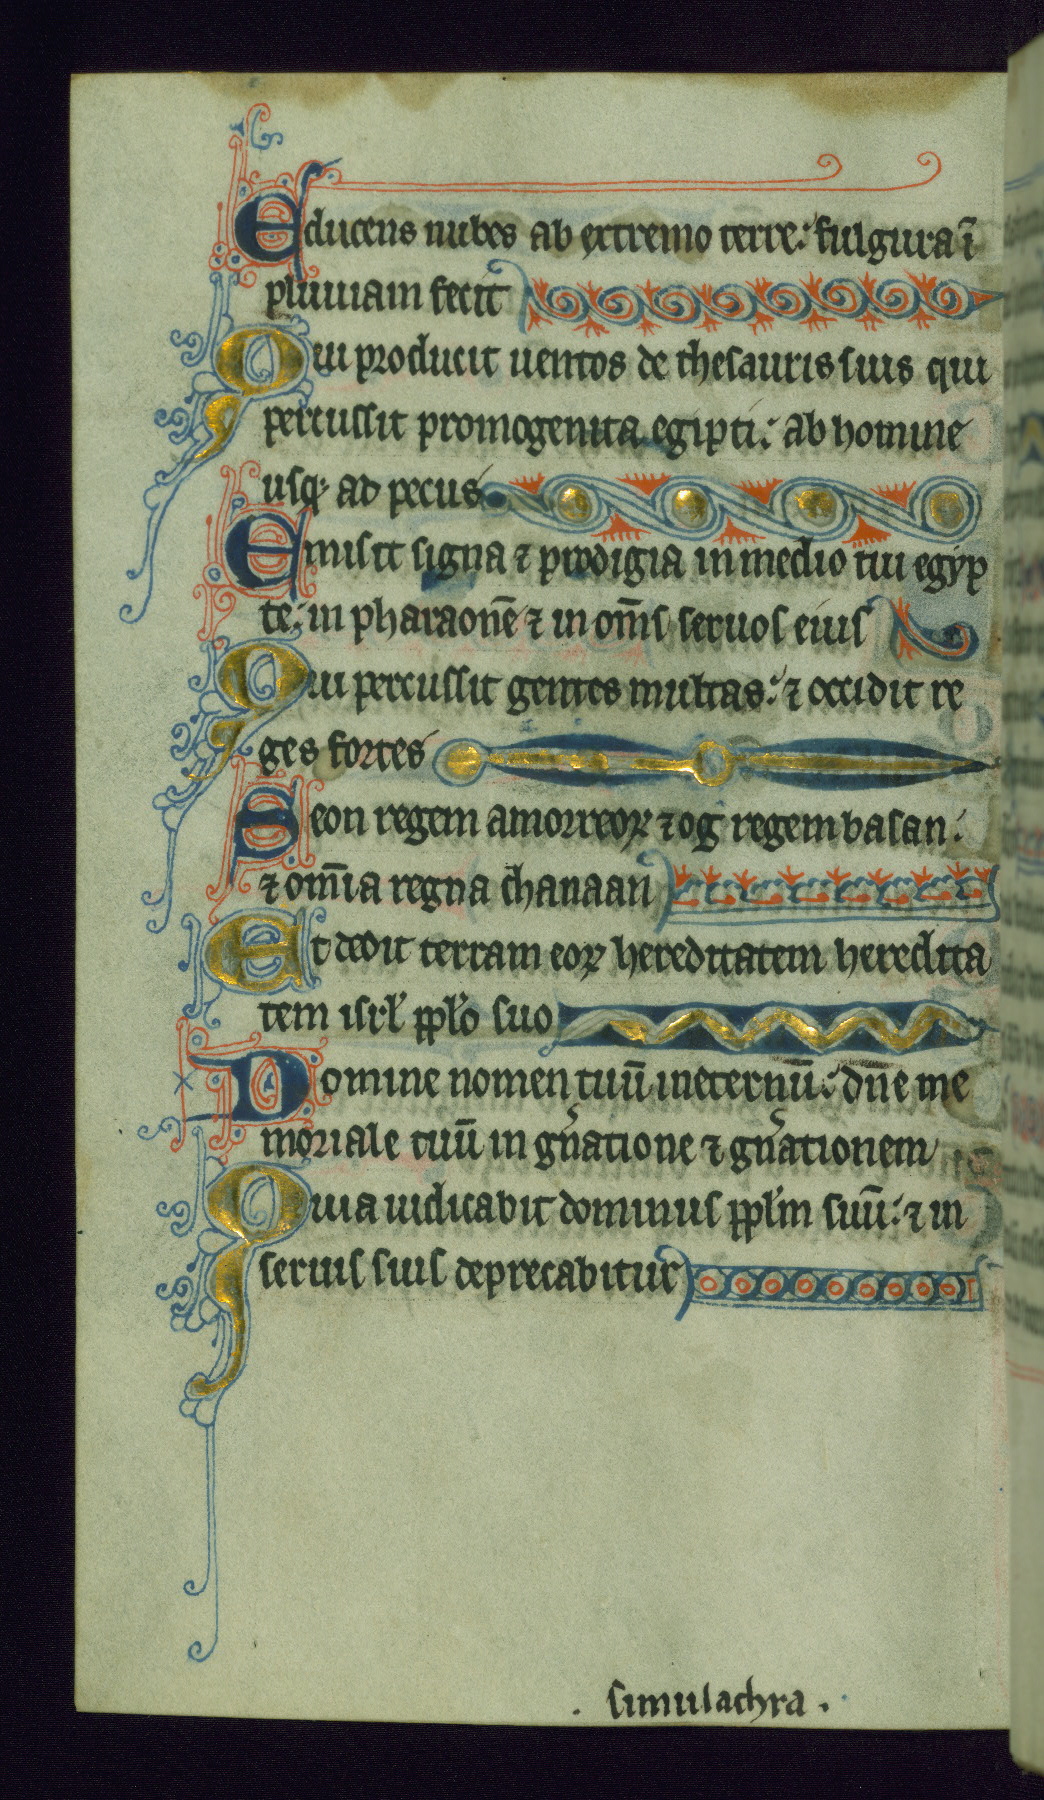 Educens nubes ab extremo terre: fulgura ī
pluuiam fecit
Qui producit uentos de thesauris suis qui
percussit promogenita egipti: ab homine
usq; ad pecus
Emisit signa ⁊ prodigia in medio tui egyp
te: in pharaonē ⁊ in om̄s seruos eius
Qui percussit gentes multas: ⁊ occidit re
ges fortes
Seon regem amorreoꝝ ⁊ og regem basan:
⁊ om̄ia regna chanaan
Et dedit terram eoꝝ hereditatem heredita
tem isrl̄ ppl̄o suo
Domine nomen tuū in eternū: dn̄e me
moriale tuū in gn̄atione ⁊ gn̄ationem
Quia iudicabit dominus ppl̄m suū: ⁊ in
seruis suis deprecabitur
. simulachra .